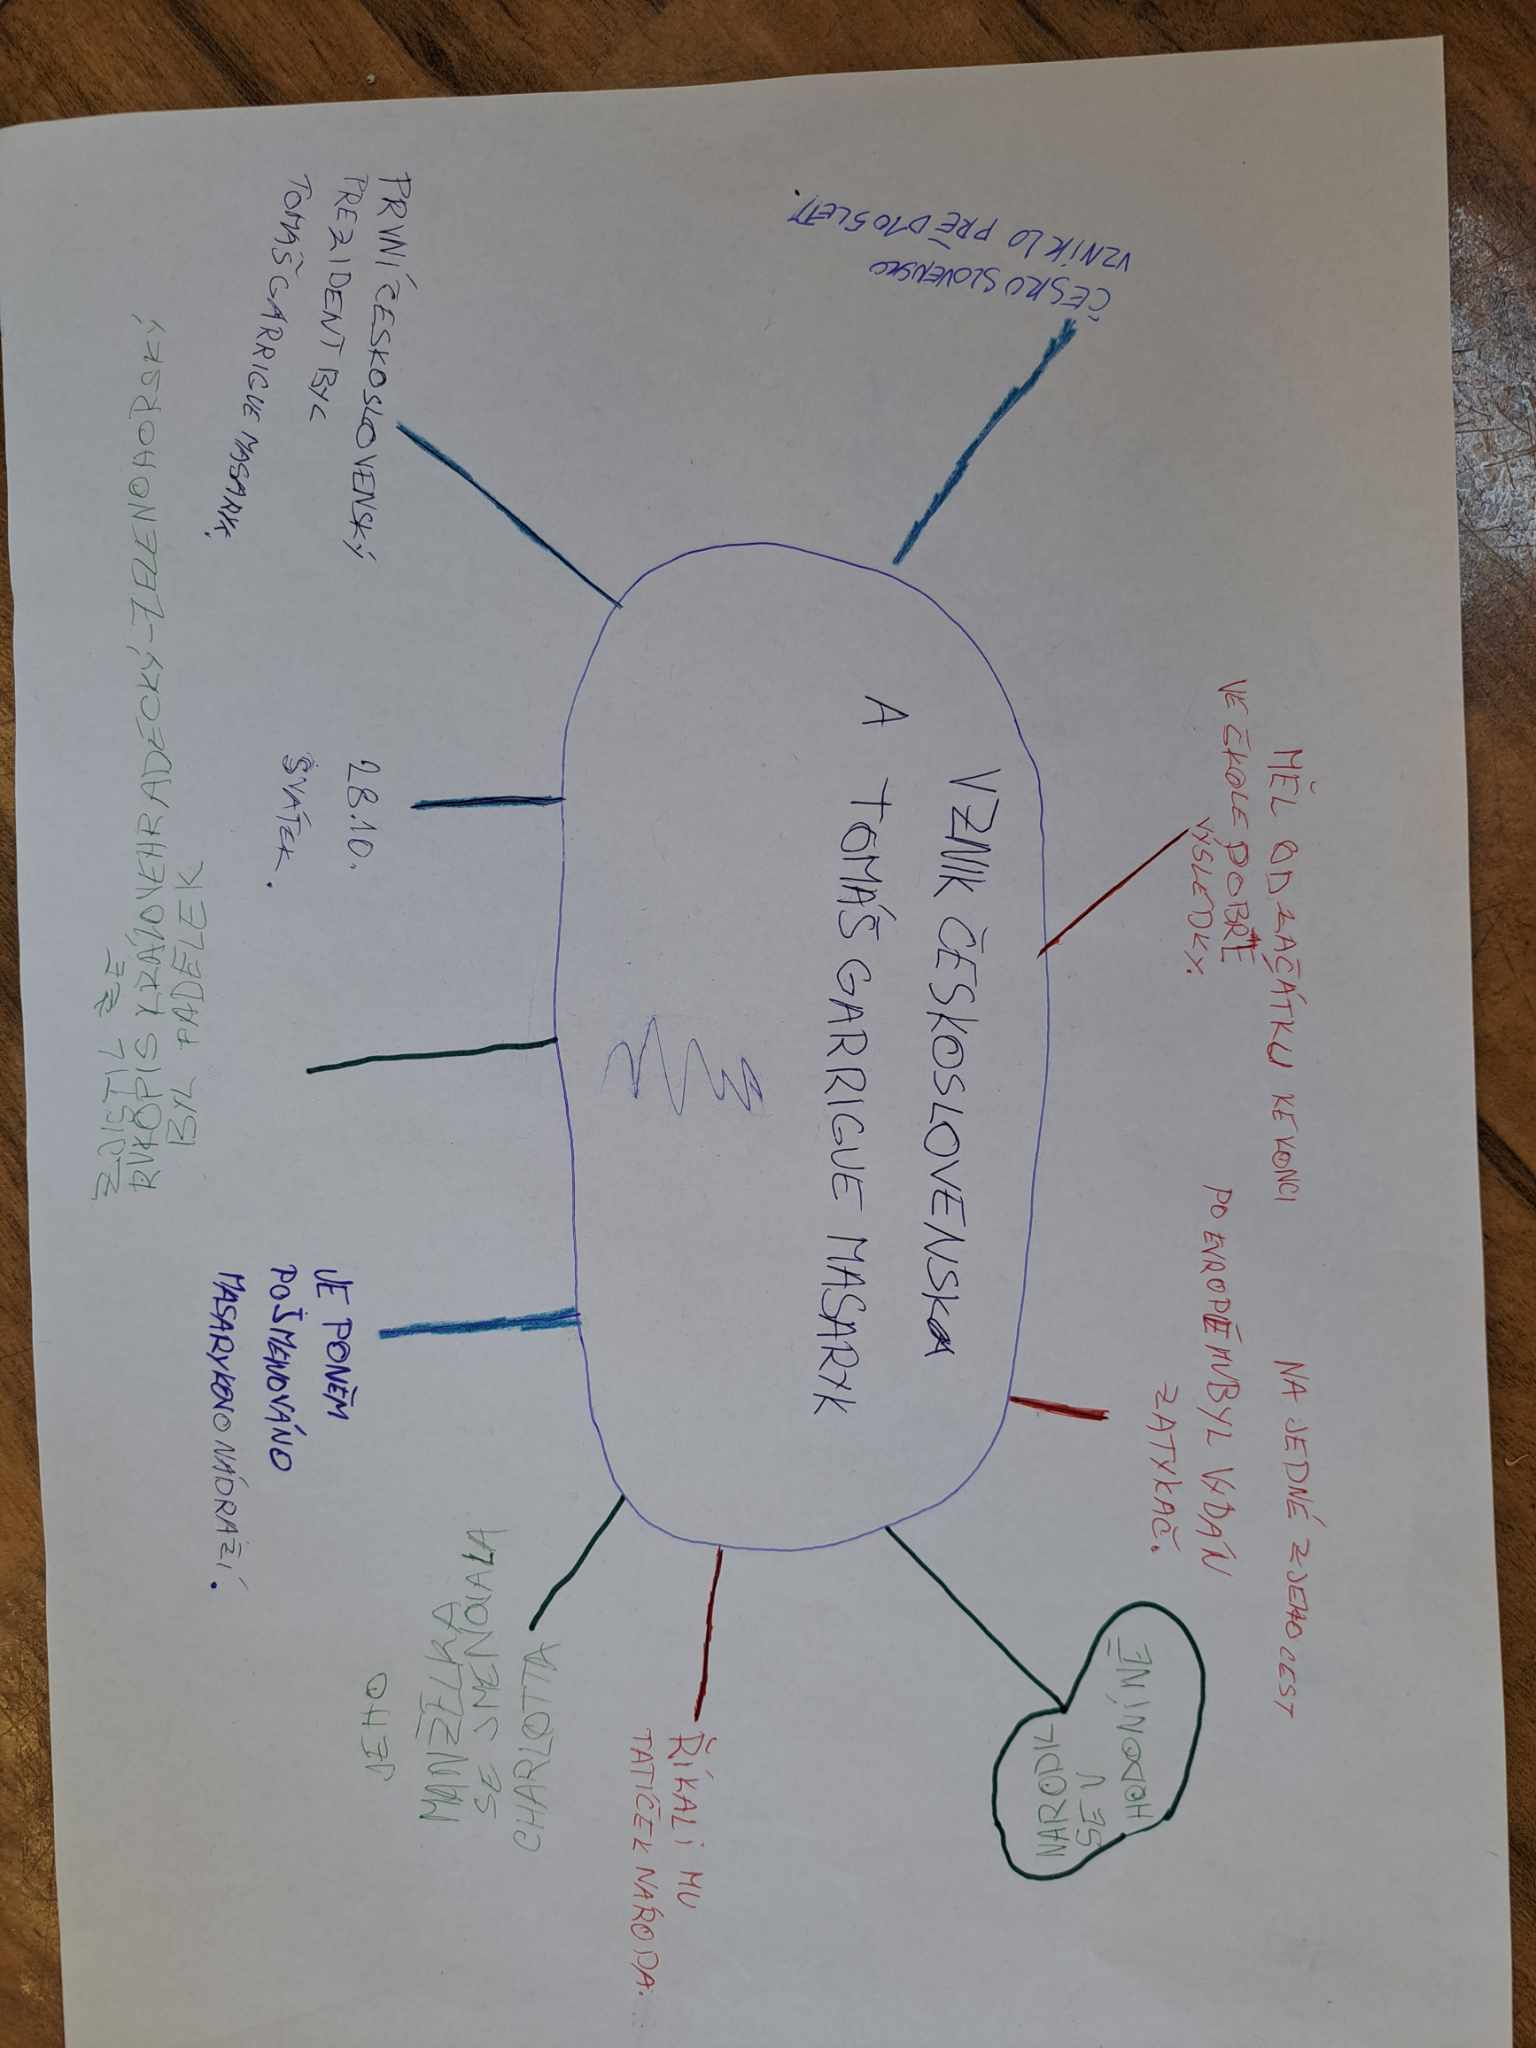 VZNIK ČESKOSLOVENSKA
A TOMÁŠ GARRIGUE MASARYK
ČESKOSLOVENSKO
VZNIKLO PŘED 105 LETY.
MĚL OD ZAČÁTKU KE KONCI
VE ČKOLE DOBŘE
VÝSLEDKY.
NA JEDNÉ Z JEHO CEST
PO EVROPĚ MU BYL VYDÁN
ZATYKAČ.
NARODIL
SE V
HODONÍNĚ
ŘÍKALI MU
TATÍČEK NÁRODA.
CHARLOTTA
SE JMENOVALA
MANŽELKA
JEHO
JE PO NĚM
POJMENOVÁNO
MASARYKOVO NÁDRAŽÍ.
BYL PADĚLEK
RUKOPIS KRÁLOVEHRADECKÝ-ZELENOHORSKÝ
ZJISTIL ŽE
28.10.
SVÁTEK.
PRVNÍ ČESKOSLOVENSKÝ
PREZIDENT BYL
TOMÁŠ GARRIGUE MASARYK.